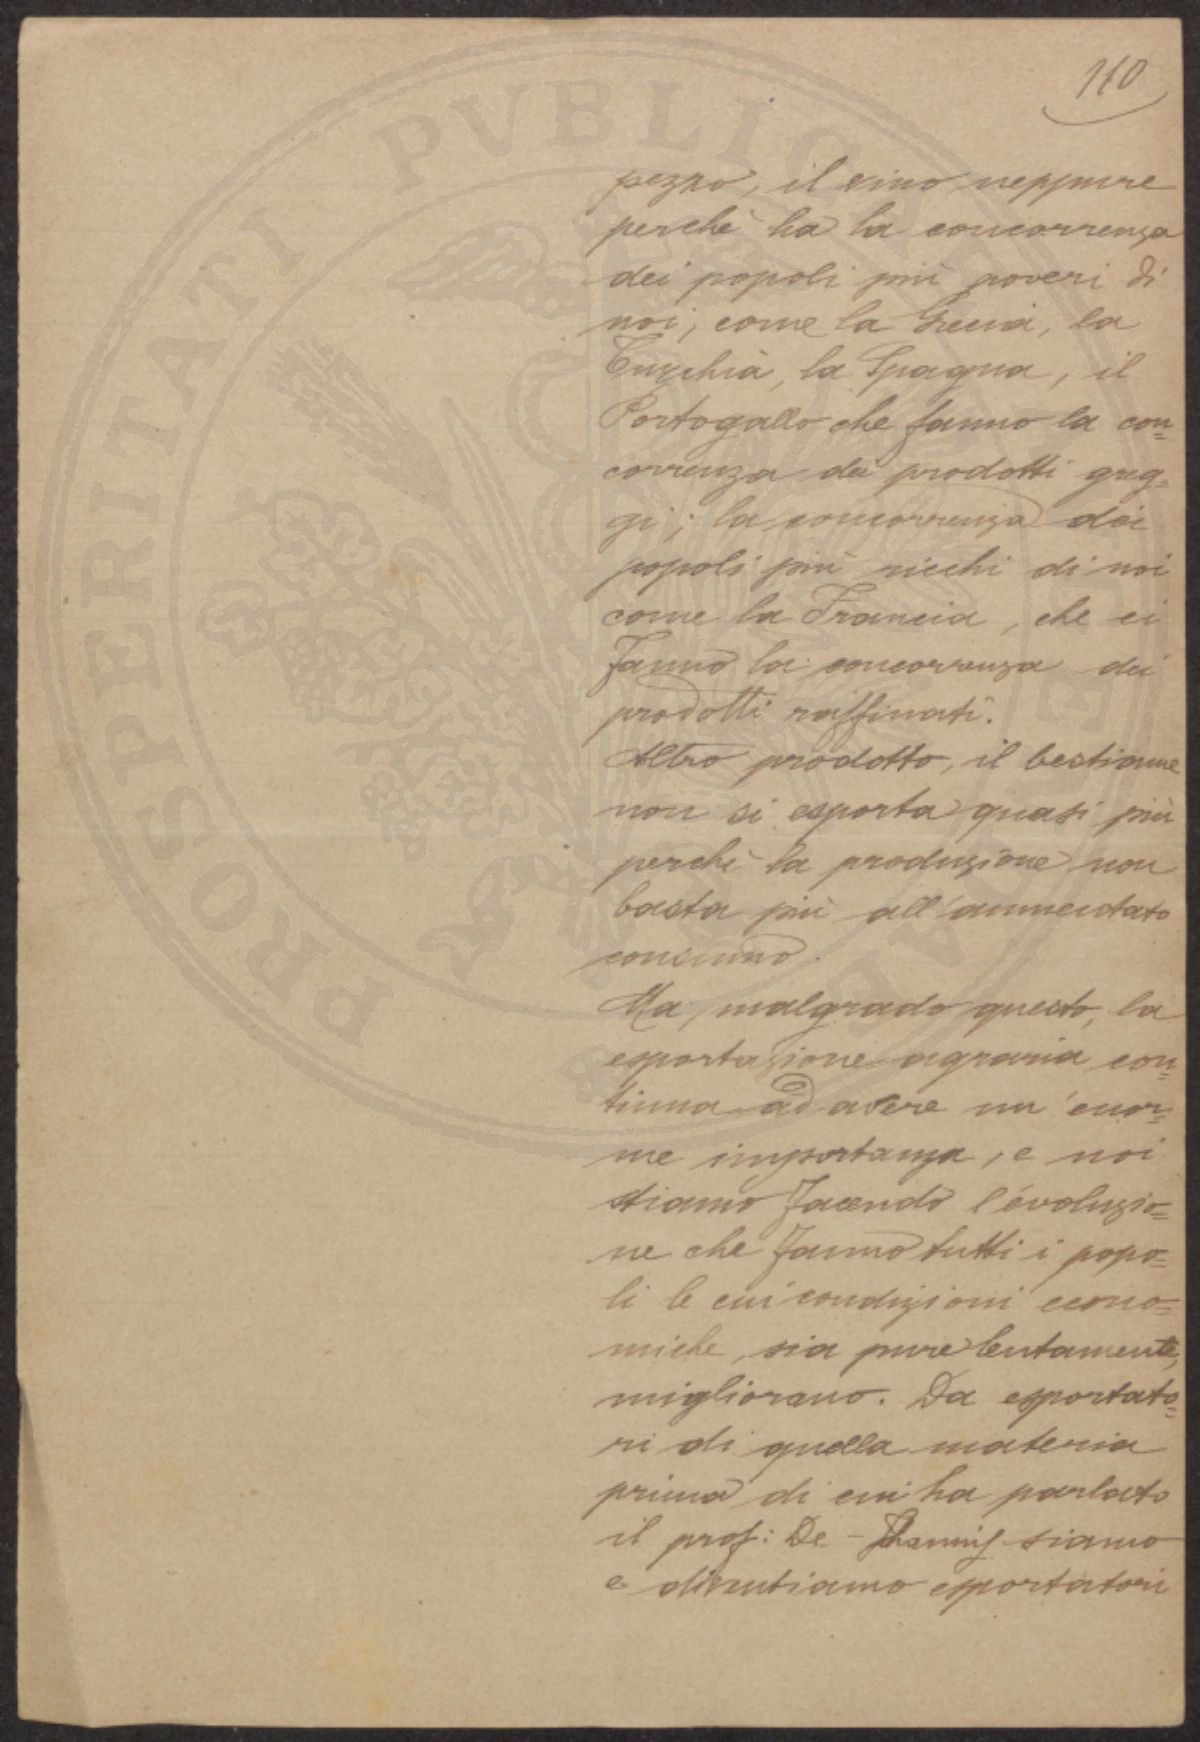 110
pezzo, il vino neppure
perchè ha la concorrenza
dei popoli più poveri di
noi, come la Grecia, la
Turchia, la Spagna, il
Portogallo che fanno la con=
correnza dei prodotti greg=
gi; la concorrenza dei
popoli più ricchi di noi
come la Francia, che ci
fanno la concorrenza dei
prodotti raffinati.
Altro prodotto, il bestiame
non si esporta quasi più
perchè la produzione non
basta più all'aumentato
consumo.
Ma, malgrado questo, la
esportazione agraria con=
tinua ad avere un'enor=
me importanza, e noi
stiamo facendo l'evoluzio=
ne che fanno tutti i popo=
li le cui condizioni econo=
miche, sia pure lentamente,
migliorano. Da esportato=
ri di quella materia
prima di cui ha parlato
il prof: De - siamo
e diventiamo esportatori
PROSPERITATI PVBLICAE